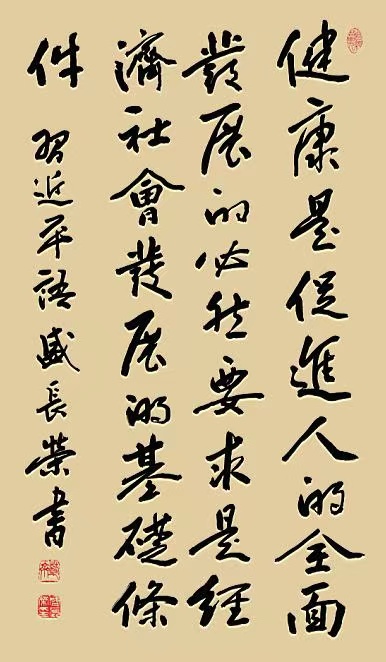 健康是促進人的全面
發展的必然要求是經
濟社會發展的基礎條
件
習近平語盛長榮書